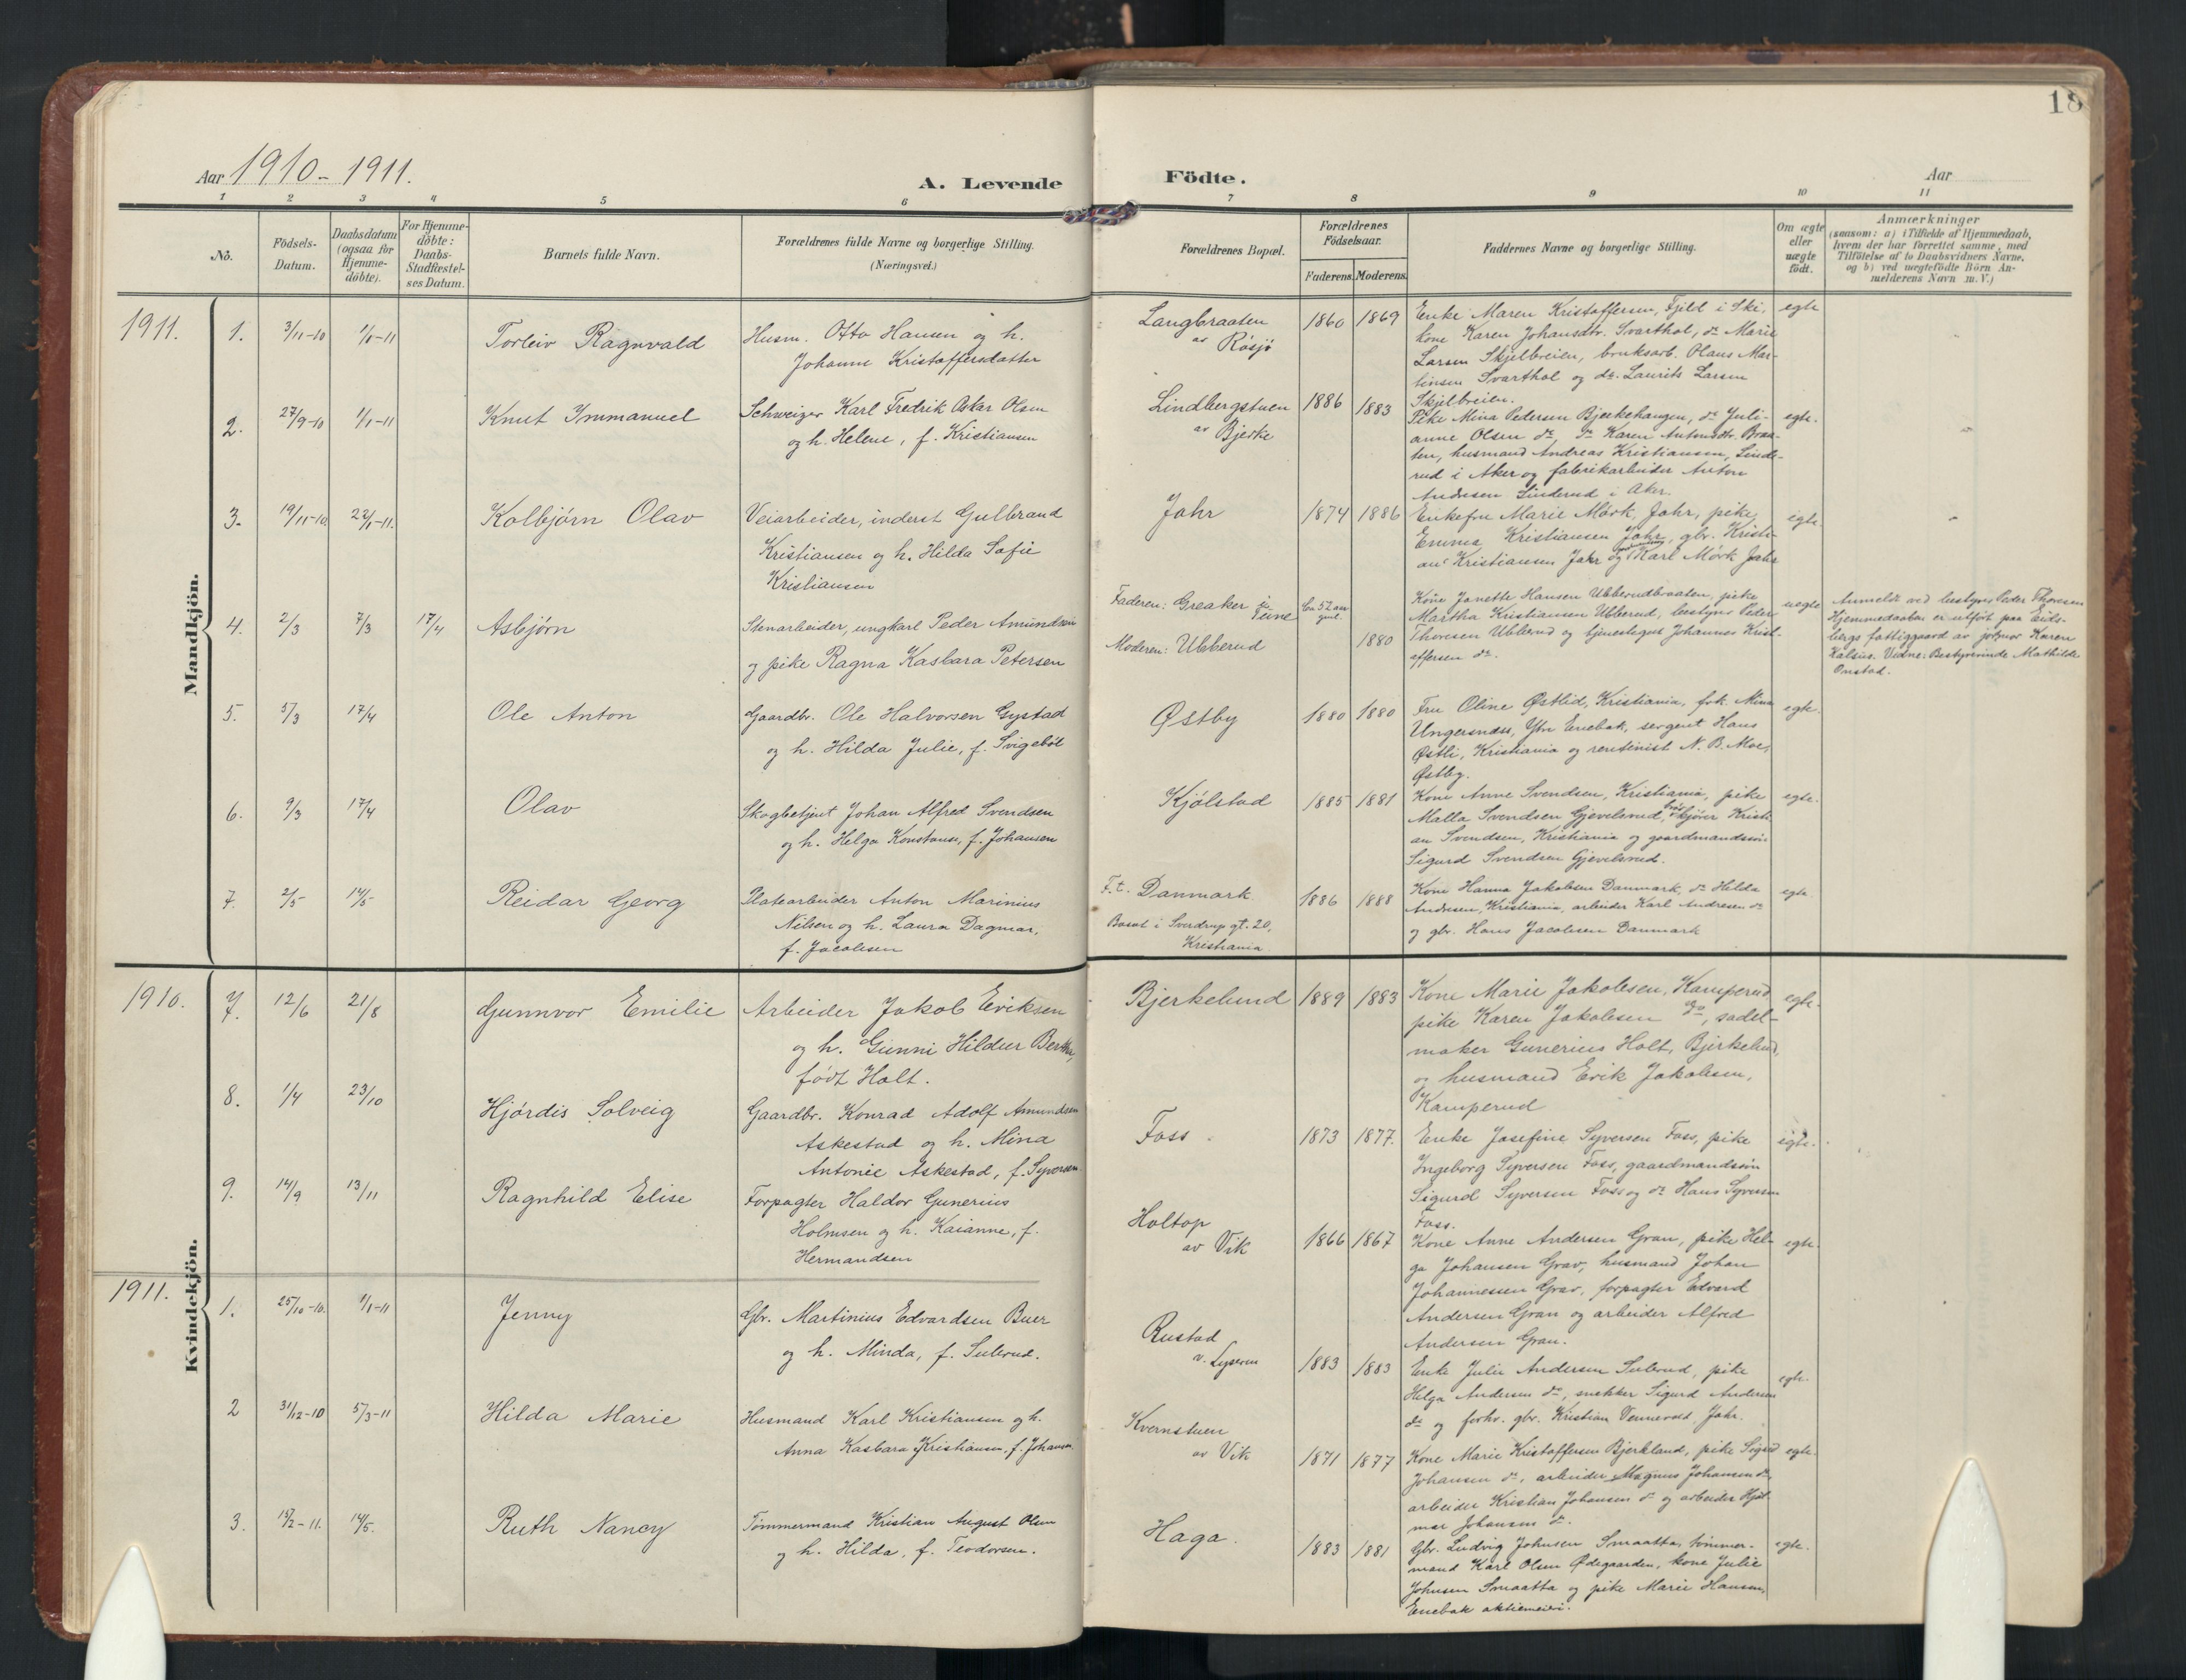 18
Aar 1910-1911.
A. Levende
Födte.
Aar
1 2 3 4 5 6 7 8 9 10 11
No.
Födsels-
Datum.
Daabsdatum
(ogsaa for
Hjemme-
döbte).
For Hjemme-
döbte:
Daabs-
Stadfæstel-
ses Datum.
Barnets fulde Navn.
Forældrenes fulde Navne og borgerlige Stilling.
(Næringsvei.)
Forældrenes Bopæl.
Forældrenes
Födselsaar.
Faderens. Moderens.
Faddernes Navne og borgerlige Stilling.
Om ægte
eller
uægte
födt.
Anmærkninger
(saasom: a) i Tilfælde af Hjemmedaab,
hvem der har forrettet samme, med
Tilföielse af to Daabsvidners Navne,
og b) ved uægtefödte Börn An-
melderens Navn m. V.)
Mandkjön.
1911. 1. 3/11-10 1/1-11 Torleiv Ragnvald
Husm. Otto Hansen og h.
Johanne Kristoffersdatter
Langbraaten
av Røsjø
1860 1869
Enke Maren Kristoffersen, Fjeld i Ski,
kone Karen Johansdtr. Svarthol, do Marie
Larsen Skjelbreien, bruksarb. Olaus Mar-
tinsen Svarthol og do. Laurits Larsen
Skjelbreien.
egte
2. 27/9-10 1/1-11 Knut Immanuel
Schweizer Karl Fredrik Oskar Olsen
og h. Helene, f. Kristiansen
Lindbergstuen
av Bjerke
1886 1883
Pike Mina Pedersen Bjerkehaugen, do Juli-
anne Olsen do, do Karen Antonsdtr. Braa-
ten, husmand Andreas Kristiansen, Linde-
rud i Aker og fabrikarbeider Anton
Andresen Linderud i Aker.
egte.
3. 19/11-10. 22/1-11. Kolbjørn Olav
Veiarbeider, inderst Gulbrand
Kristiansen og h. Hilda Sofie
Kristiansen
Jahr
1874 1886
Enkefru Marie Mørk, Jahr, pike
Emma Kristiansen Jahr, gbr. Kristi-
an Kristiansen Jahr og Karl Mørk Jahr
egte.
4. 2/3 7/3 17/4 Asbjørn
Stenarbeider, ungkarl Peder Amundsen
og pike Ragna Kasbara Petersen
Faderen: Greaker
Moderen: Ubberud
1880
Kone Janette Hansen Ubberudbraaten, pike
Martha Kristiansen Ubberud, bestyrer Peder
Thoresen Ubberud og tjenestegut Johannes Krist-
offersen do.
uegte
Anmeldt ved bestyrer Peder Thoresen
Hjemmedaaben er utført paa Eids-
bergs fattiggaard av jordmor Karen
Kalsius. Vidne: Bestyrerinde Mathilde
Onstad.
5. 5/3 17/4 Ole Anton
Gaardbr. Ole Halvorsen Gystad
og h. Hilda Julie, f. Svigebøl
Østby
1880 1880
Fru Oline Østlid, Kristiania, frk. Mina
Ungersness, Ytre Enebak, sergent Hans
Østli, Kristiania og rentenist N. B. Moe,
Østby.
egte.
6. 9/3 17/4 Olav
Skogbetjent Johan Alfred Svendsen
og h. Helga Konstanse, f. Johansen
Kjølstad
1885 1881
Kone Anne Svendsen, Kristiania, pike
Malla Svendsen Gjevelsrud, Kristi-
an Svendsen, Kristiania og gaardmandssøn
Sigurd Svendsen Gjevelsrud.
egte.
7. 2/5 14/5 Reidar Georg
Platearbeider Anton Marinius
Nilsen og h. Laura Dagmar,
f. Jacobsen
F.t. Danmark.
Bosat i Sverdrups gt. 20,
Kristiania.
1886 1888
Kone Hanna Jakobsen Danmark, do Hilda
Andresen, Kristiania, arbeider Karl Andresen do
og gbr. Hans Jacobsen Danmark
egte.
Kvindekjön.
1910. 7. 12/6 21/8 Gunnvor Emilie
Arbeider Jakob Eriksen
og h. Gunni Hildur Berthe,
født Holt.
Bjerkelund
1889 1883
Kone Marie Jakobsen, Kamperud
pike Karen Jakobsen do, sadel-
maker Gunerius Holt, Bjerkelund,
og husmand Erik Jakobsen,
Kamperud
egte.
8. 1/4 23/10 Hjørdis Solveig
Gaardbr. Konrad Adolf Amundsen
Askestad og h. Mina
Antonie Askestad, f. Syversen.
Foss.
1873 1877.
Enke Josefine Syversen Foss, pike
Ingeborg Syversen Foss, gaardmandssøn
Sigurd Syversen Foss og do Hans Syversen
Foss.
egte.
9. 14/9 13/11 Ragnhild Elise
Forpagter Haldor Gunerius
Holmsen og h. Kaianne, f.
Hermandsen
Holtop
av Vik
1866 1867
Kone Anne Andersen Gran, pike Hel-
ga Johansen Grav, husmand Johan
Johannessen Grav, forpagter Edvard
Andersen Gran og arbeider Alfred
Andersen Gran.
egte.
1911. 1. 25/10-10. 1/1-11 Jenny
Gbr. Martinius Edvardsen Buer
og h. Minda, f. Sulerud.
Rustad
v. Lyseren
1883 1883
Enke Julie Andersen Sulerud, pike
Helga Andersen do, snekker Sigurd Andersen
do og forhv. gbr. Kristian Vennevold, Jahr.
egte.
2 31/12-10 5/3-11 Hilda Marie
Husmand Karl Kristiansen og h.
Anna Kasbara Kristiansen, f. Johansen.
Kvernstuen
av Vik
1871 1877
Kone Marie Kristoffersen Bjerkland, pike Sigrid
Johansen do, arbeider Magnus Johansen do,
arbeider Kristian Johansen do og arbeider Hjal-
mar Johansen do.
egte.
3. 15/2-11. 14/5. Ruth Nancy
Tømmermand Kristian August Olsen
og h. Hilda, f. Teodorsen.
Haga.
1883 1881
Gbr. Ludvig Johnsen Smaatta, tømmer-
mand Karl Olsen Ødegaarden, kone Julie
Johnsen Smaatta og pike Marie Hansen,
Enebak aktiemeieri.
egte.